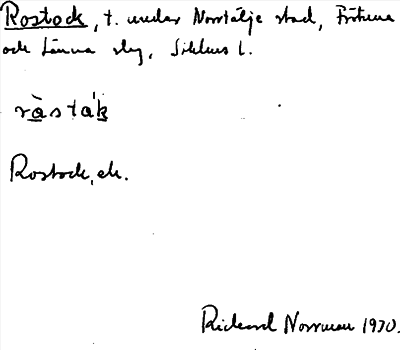 Rostock, t. under Norrtälje stad, Frötuna
och Länna slg, Sthlms l.
ràsták
Rostock, ek.
Rickard Norrman 1930.